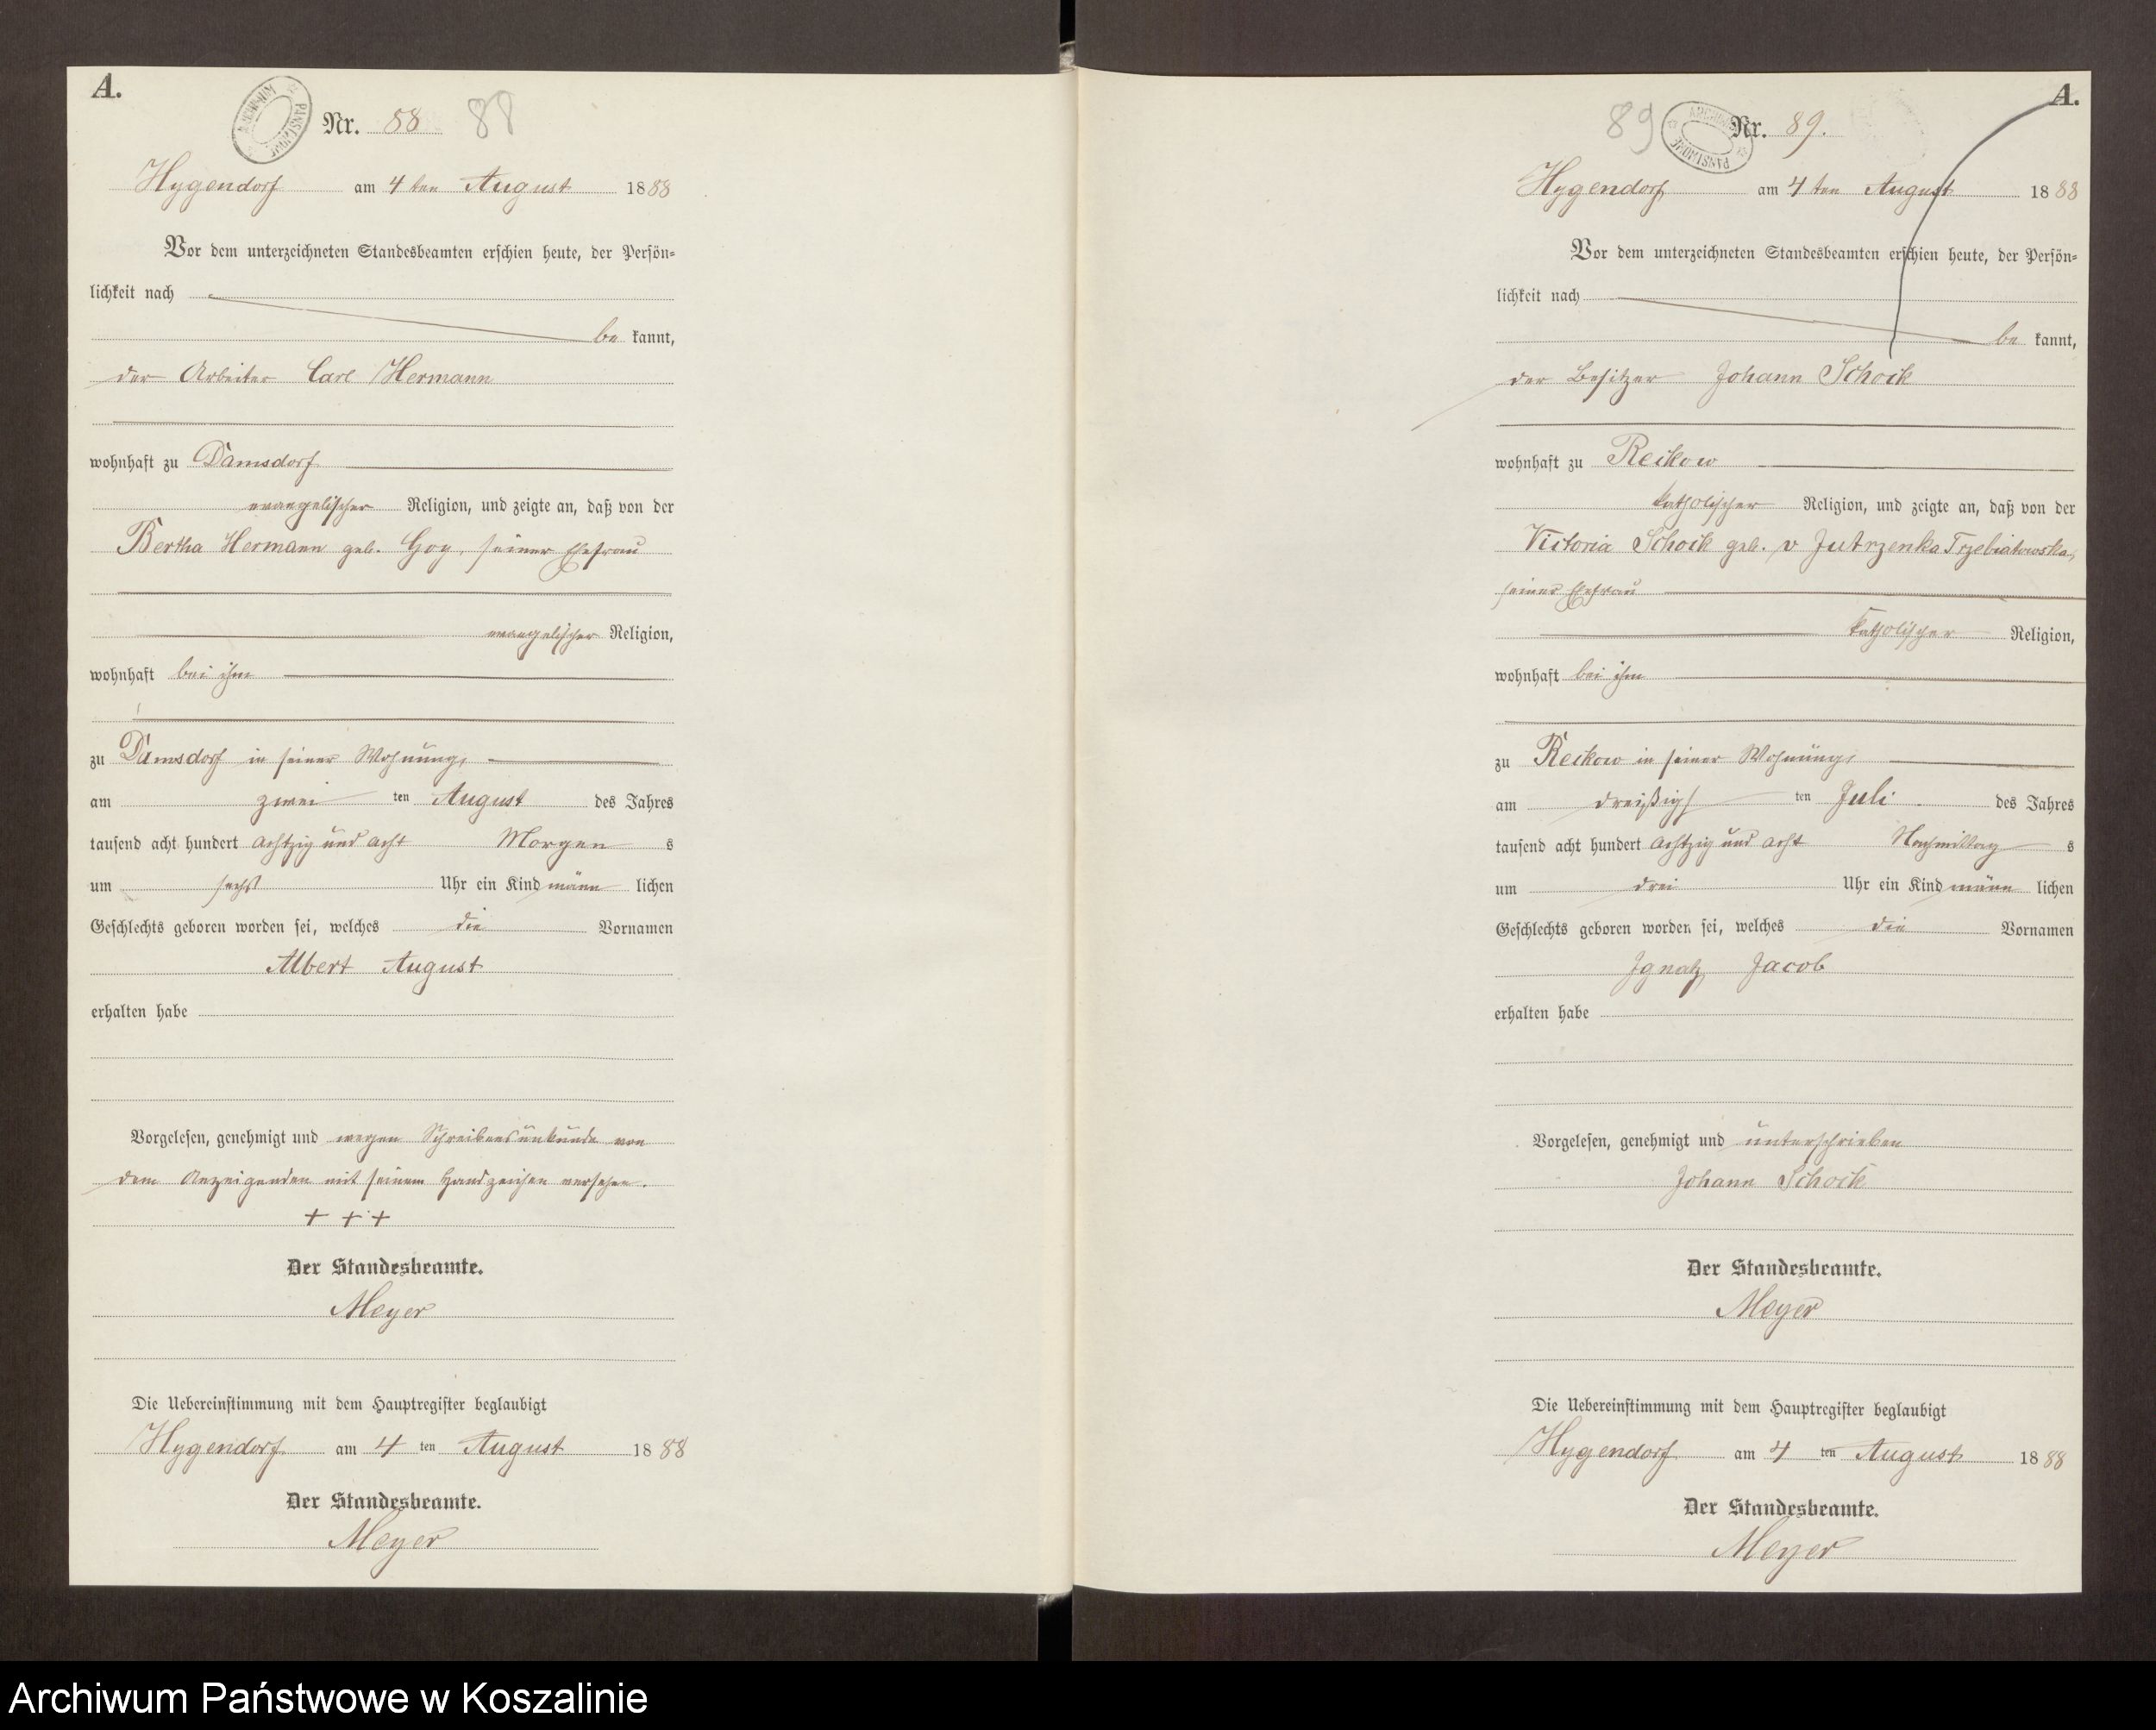 A.
ARCHIWUM PAŃSTWOWE
Nr. 88 88
Hygendorf am 4ten August 1888
Vor dem unterzeichneten Standesbeamten erschien heute, der Persön-
lichkeit nach
be kannt,
der Arbeiter Carl Hermann
wohnhaft zu Damsdorf
evangelischer Religion, und zeigte an, daß von der
Bertha Hermann geb. Goy, seiner Ehefrau
evangelischer Religion,
wohnhaft bei ihm
zu Damsdorf in seiner Wohnung,
am zwei ten August des Jahres
tausend acht hundert achtzig und acht Morgen s
um sechs Uhr ein Kind männ lichen
Geschlechts geboren worden sei, welches die Vornamen
Albert August
erhalten habe
Vorgelesen, genehmigt und wegen Schreibensunkunde von
dem Anzeigenden mit seinem Handzeichen versehen.
+ + +
Der Standesbeamte.
Meyer
Die Uebereinstimmung mit dem Hauptregister beglaubigt
Hygendorf am 4 ten August 1888
Der Standesbeamte.
Meyer
A.
89 Nr. 89.
ARCHIWUM PAŃSTWOWE
Hygendorf am 4ten August 1888
Vor dem unterzeichneten Standesbeamten erschien heute, der Persön-
lichkeit nach
be kannt,
der Besitzer Johann Schock
wohnhaft zu Reckow
katholischer Religion, und zeigte an, daß von der
Victoria Schock geb. v Jutrzenka Trzebiatowska,
seiner Ehefrau
katholischer Religion,
wohnhaft bei ihm
zu Reckow in seiner Wohnung,
am dreißigs ten Juli des Jahres
tausend acht hundert achtzig und acht Nachmittag s
um drei Uhr ein Kind männ lichen
Geschlechts geboren worden sei, welches die Vornamen
Ignatz Jacob
erhalten habe
Vorgelesen, genehmigt und unterschrieben
Johann Schock
Der Standesbeamte.
Meyer
Die Uebereinstimmung mit dem Hauptregister beglaubigt
Hygendorf am 4 ten August 1888
Der Standesbeamte.
Meyer
Archiwum Państwowe w Koszalinie